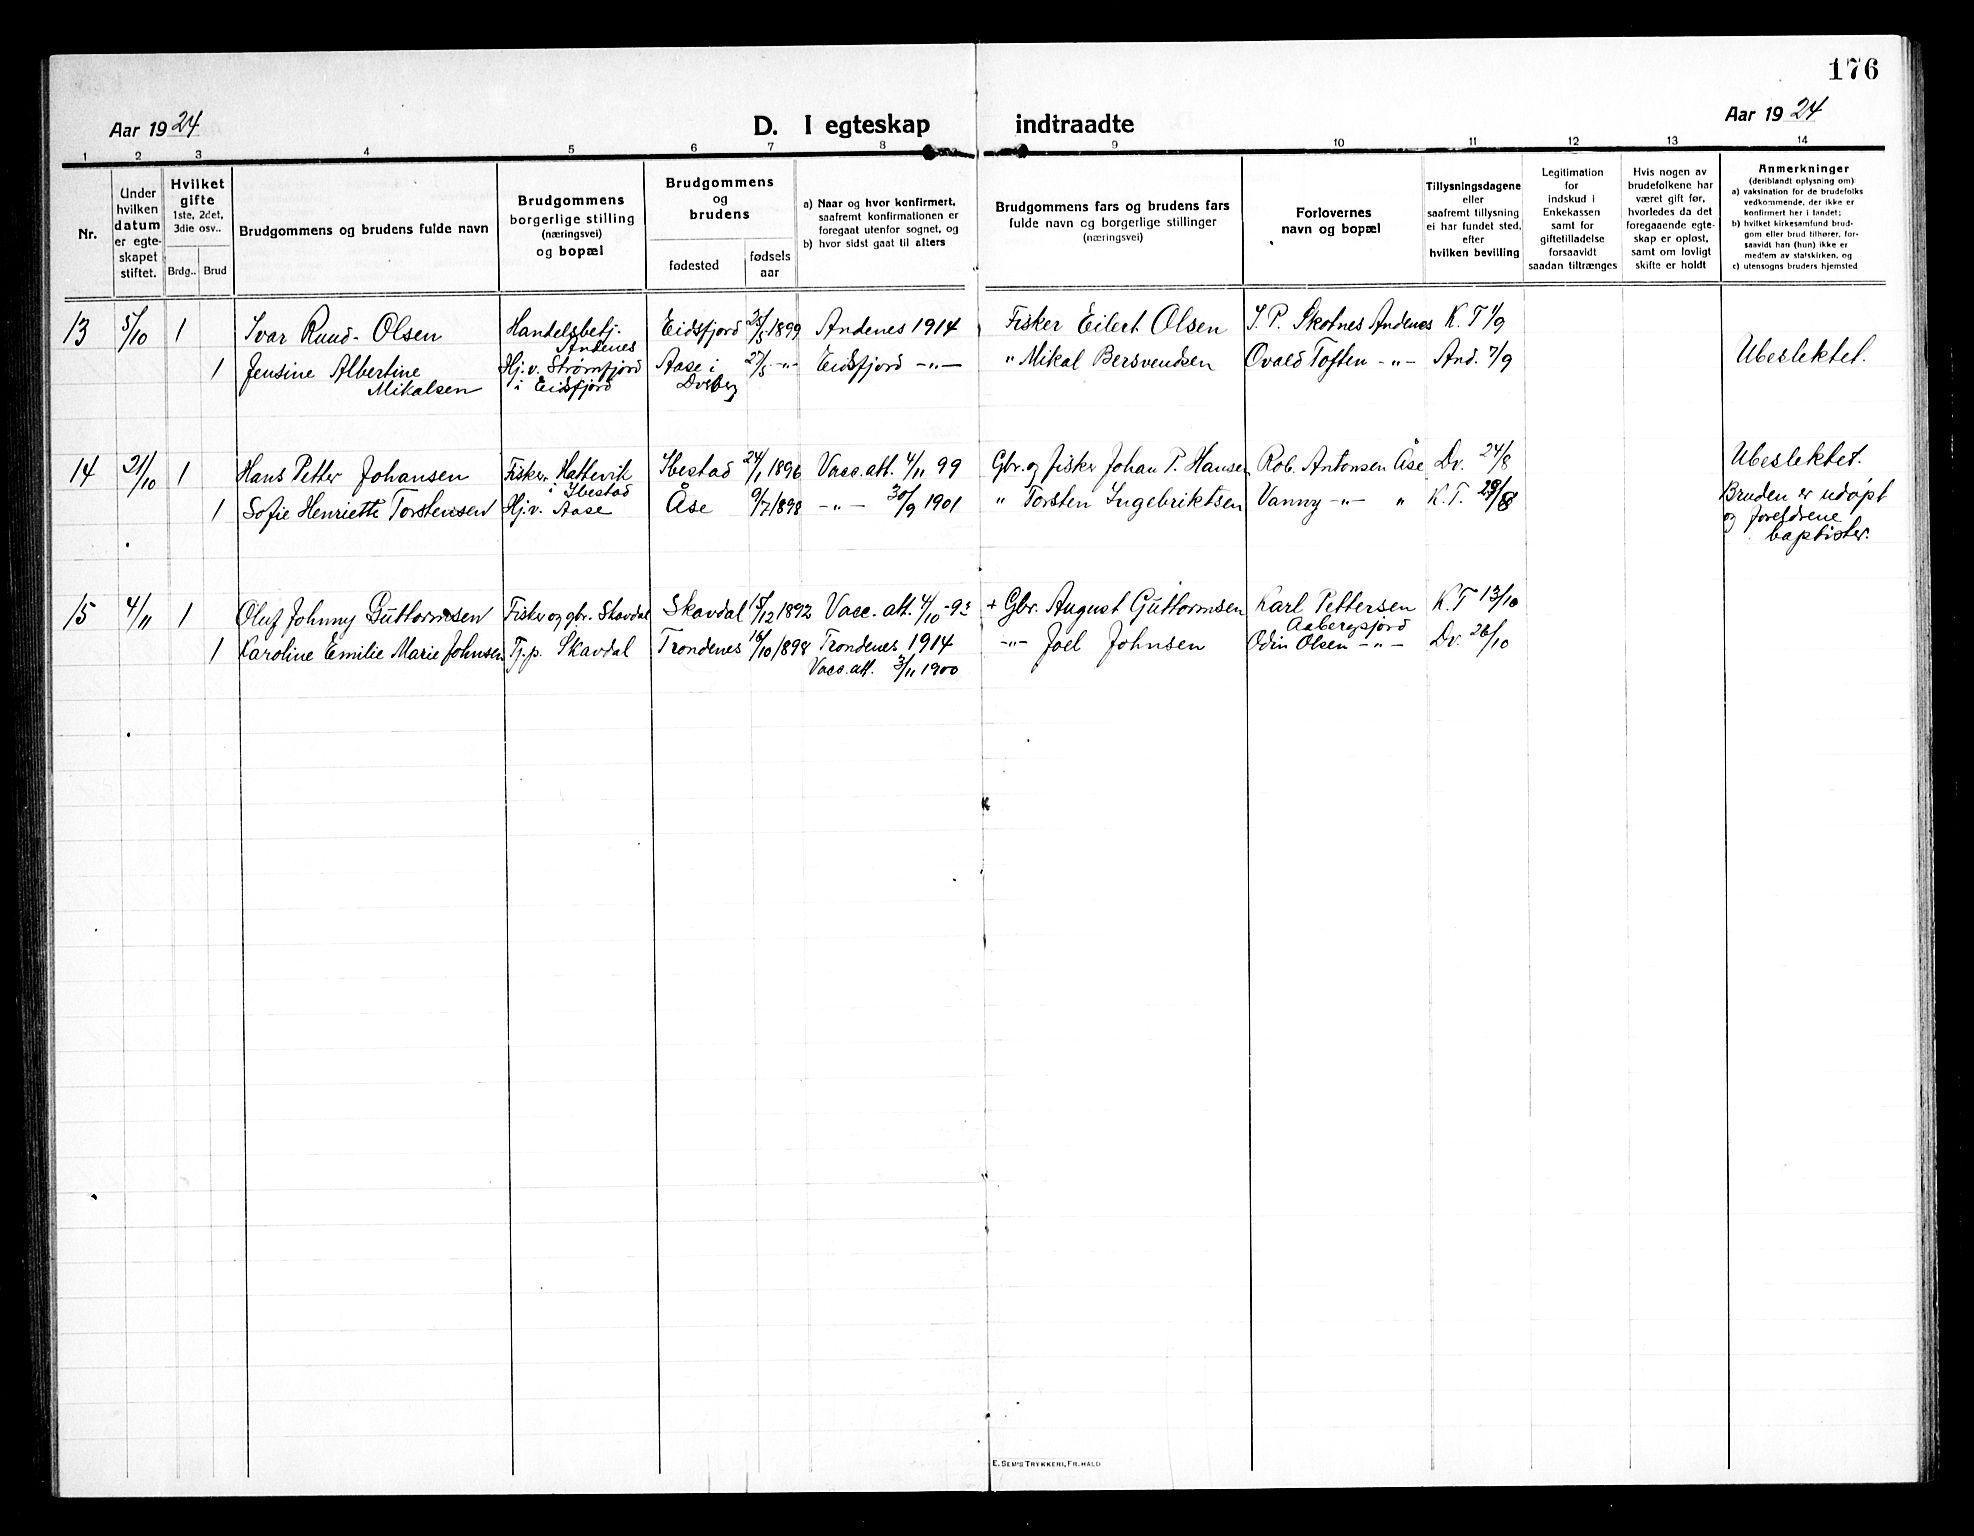 176
Aar 1924
D. I egteskap indtraadte
Aar 1924
1 2 3 4 5 6 7 8 9 10 11 12 13 14
Nr.
Under hvilken datum er egte-skapet stiftet.
Hvilket gifte
1ste, 2det, 3die osv..
Brdg.. Brud
Brudgommens og brudens fulde navn
Brudgommens borgerlige stilling (næringsvei) og bopæl
Brudgommens og brudens
fødested
fødsels aar
a) Naar og hvor konfirmert, saafremt konfirmationen er foregaat utenfor sognet, og
b) hvor sidst gaat til alters
Brudgommens fars og brudens fars fulde navn og borgerlige stillinger (næringsvei)
Forlovernes navn og bopæl
Tillysningsdagene eller saafremt tillysning ei har fundet sted, efter hvilken bevilling
Legitimation for indskud i Enkekassen samt for giftetilladelse forsaavidt saadan tiltrænges
Hvis nogen av brudefolkene har været gift før, hvorledes da det foregaaende egte-skap er opløst, samt om lovligt skifte er holdt
Anmerkninger
(deriblandt oplysning om)
a) vaksination for de brudefolks vedkommende, der ikke er konfirmert her i landet;
b) hvilket kirkesamfund brud-gom eller brud tilhører, for-saavidt han (hun) ikke er medlem av statskirken, og
c) utensogns bruders hjemsted
13 5/10 1 Ivar Ruud-Olsen Handelsbetj. Andenes Eidsfjord 1899 Andenes 1914 Fisker Eilert Olsen Skotnes Andenes K. T 1/9
1 Jensine Albertine Mikalsen Hj.v. Strømfjord i Eidsfjord Aase i Dverberg 27/5 -"- Eidsfjord -"- " Mikal Bersvendsen Ovald Toften -"- And. 7/9 Ubeslektet.
14 21/10 1 Hans Petter Johansen Fisker, Hattevik i Ibestad Ibestad 24/1 1896 Vacc. att. 4/11 99 Gbr. og fisker Johan P. Hansen Rob. Antonsen Åse Dv. 24/8 Ubeslektet.
1 Sofie Henriette Torstensen Hj.v. Aase Åse 9/7 1898 -"- 30/9 1901 " Torsten Ingebriktsen Vanny -"- " K. T. Bruden er udøpt
og foreldrene
baptister.
15 4/11 1 Oluf Johnny Guttormsen Fisker og gbr. Skavdal Skavdal 1892 Vacc. att. 4/10 -93 + Gbr. August Guttormsen Karl Pettersen Aabergsjord K. T 13/10
1 Karoline Emilie Marie Johnsen Tj.p. Skavdal Trondenes 16/10 1898 Trondenes 1914 -"- Joel Johnsen Odin Olsen -"- Dv. 26/10
Vacc. att. 3/11 1900
E. SEM'S TRYKKERI, FR.HALD